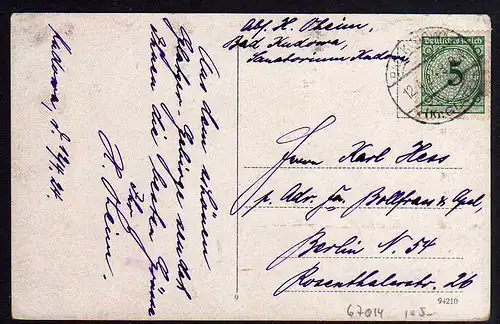 Abs. H. Oheim,
Bad Kudowa,
Sanatorium Kudowa
Deutsches Reich
5
Kudowa, d. 12/4. 24.
Aus dem schönen
Glatzer Gebirge sendet
Ihnen die besten Grüsse
Ihr
H. Oheim.
Herrn Karl Hess
p. Adr. Fa.
Berlin N. 54
Rosenthalerstr. 26
9
94210
67014